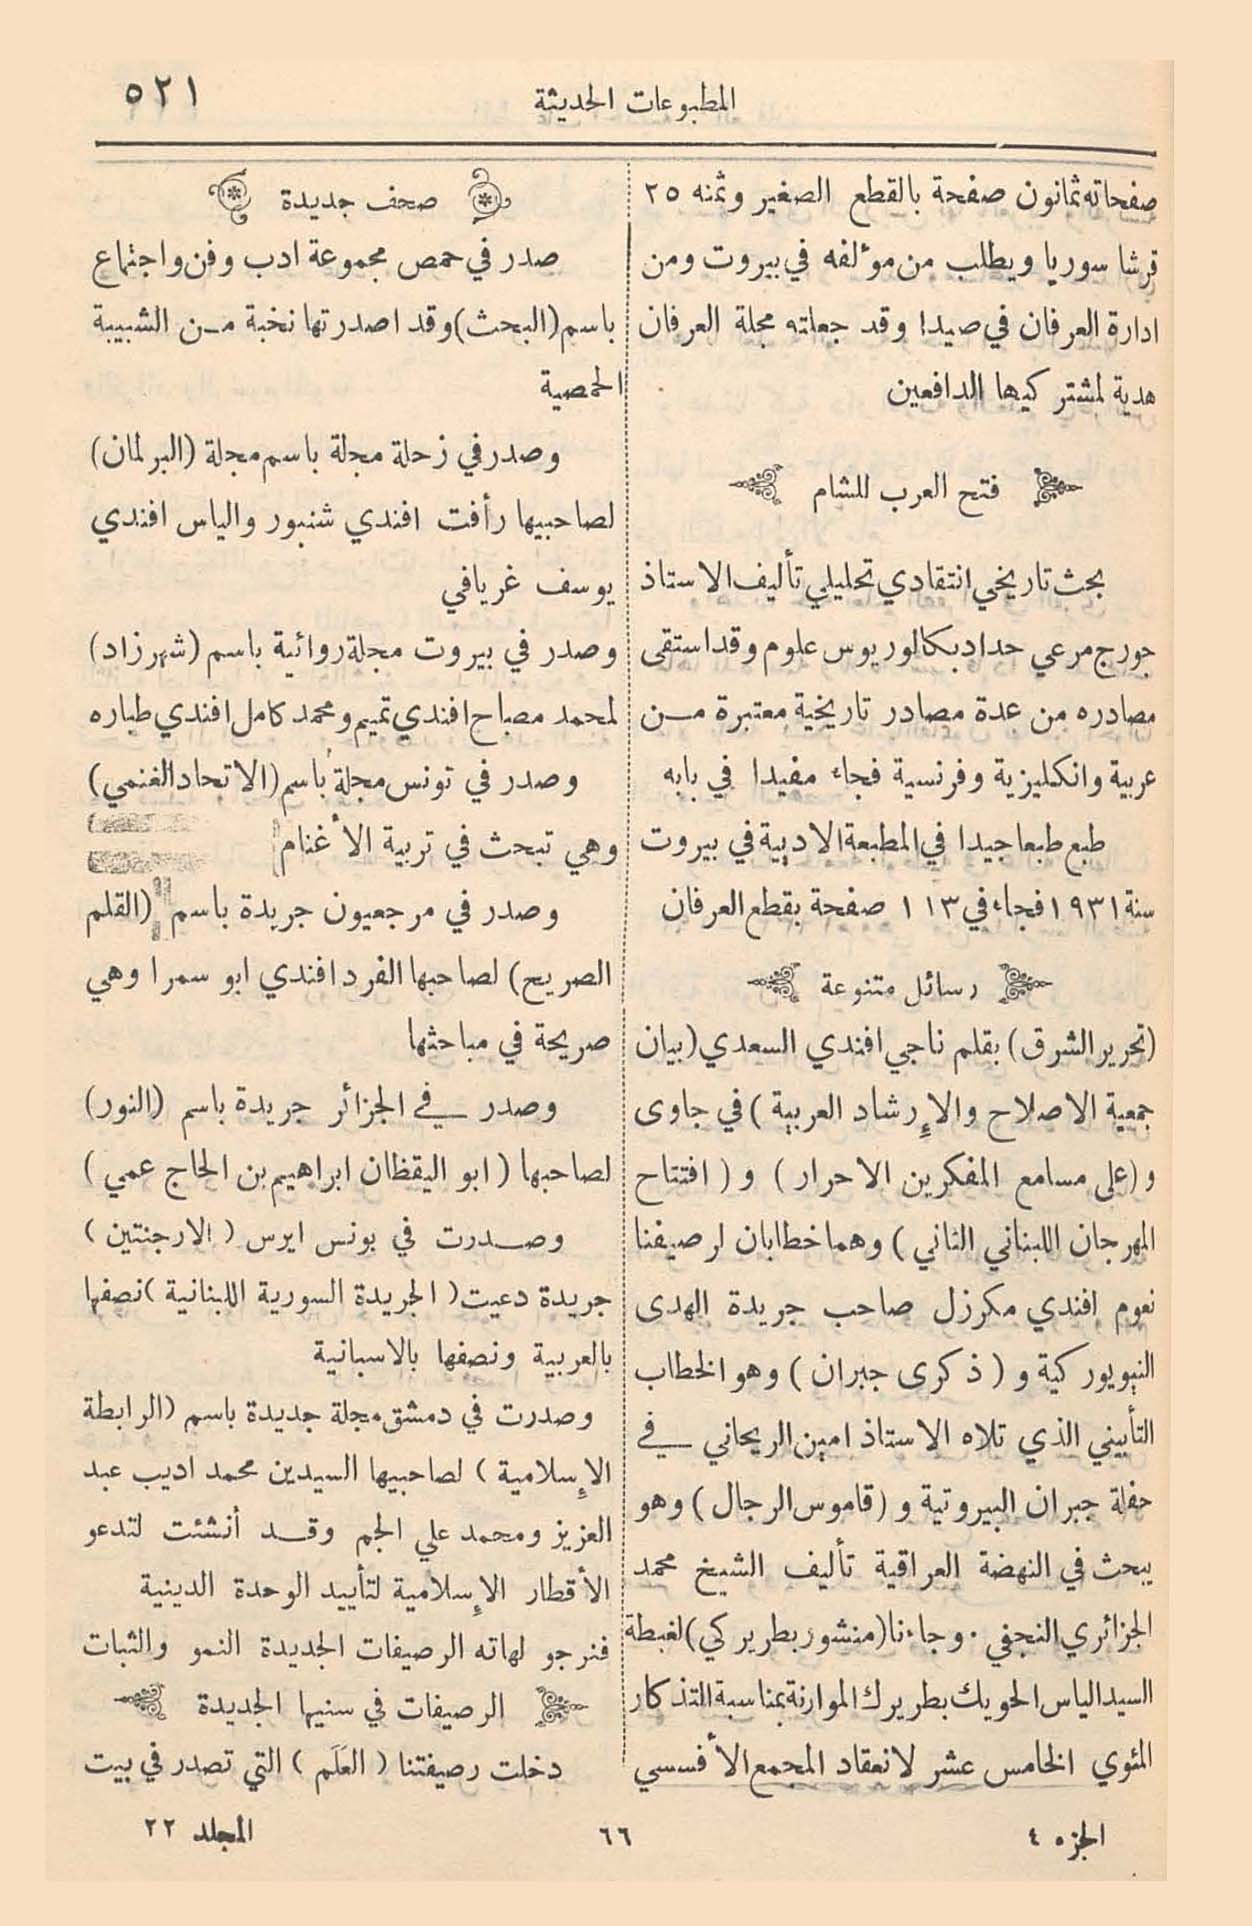 المطبوعات الحديثة
٥٢١
صفحاته ثمانون صفحة بالقطع الصغير وثمنه ٢٥
قرشا سوريا ويطلب من مؤلفه في بيروت ومن
ادارة العرفان في صيدا وقد جعلته مجلة العرفان
هدية لمشتركيها الدافعين
فتح العرب للشام
بحث تاريخي انتقادي تحليلي تأليف الاستاذ
جورج مرعي حداد بكالوريوس علوم وقد استقى
مصادره من عدة مصادر تاريخية معتبرة من
عربية وانكليزية وفرنسية فجاء مفيدا في بابه
طبع طبعا جيدا في المطبعة الادبية في بيروت
سنة ١٩٣١ فجاء في ١١٣ صفحة بقطع العرفان
رسائل متنوعة
(تحرير الشرق) بقلم ناجي افندي السعدي (بيان
جمعية الاصلاح والإرشاد العربية) في جاوى
و(على مسامع المفكرين الاحرار) و(افتتاح
المهرجان اللبناني الثاني) وهما خطابان لرصيفنا
نعوم افندي مكرزل صاحب جريدة الهدى
النيويوركية و(ذكرى جبران) وهو الخطاب
التأبيني الذي تلاه الاستاذ امين الريحاني في
حفلة جبران البيروتية و(قاموس الرجال) وهو
يبحث في النهضة العراقية تأليف الشيخ محمد
الجزائري النجفي. وجاءنا (منشور بطريركي) لغبطة
السيد الياس الحويك بطريرك الموارنة بمناسبة التذكار
المئوي الخامس عشر لانعقاد المجمع الأفسسي
صحف جديدة
صدر في حمص مجموعة ادب وفن واجتماع
باسم (البحث) وقد اصدرتها نخبة من الشبيبة
الحمصية
وصدر في زحلة مجلة باسم مجلة (البرلمان)
لصاحبيها رأفت افندي شنبور والياس افندي
يوسف غريافي
وصدر في بيروت مجلة روائية باسم (شهرزاد)
لمحمد مصباح افندي تميم ومحمد كامل افندي طباره
وصدر في تونس مجلة باسم (الاتحاد الغنمي)
وهي تبحث في تربية الأغنام
وصدر في مرجعيون جريدة باسم (القلم
الصريح) لصاحبها الفرد افندي ابو سمرا وهي
صريحة في مباحثها
وصدر في الجزائر جريدة باسم (النور)
لصاحبها (ابو اليقظان ابراهيم بن الحاج عمي)
وصدرت في بونس ايرس (الارجنتين)
جريدة دعيت (الجريدة السورية اللبنانية) نصفها
بالعربية ونصفها بالاسبانية
وصدرت في دمشق مجلة جديدة باسم (الرابطة
الإسلامية) لصاحبيها السيدين محمد اديب عبد
العزيز ومحمد علي الجم وقد أنشئت لتدعو
الأقطار الإسلامية لتأييد الوحدة الدينية
فنرجو لهاته الرصيفات الجديدة النمو والثبات
الرصيفات في سنيها الجديدة
دخلت رصيفتنا (العَلَم) التي تصدر في بيت
الجزء ٤
٦٦
المجلد ٢٢